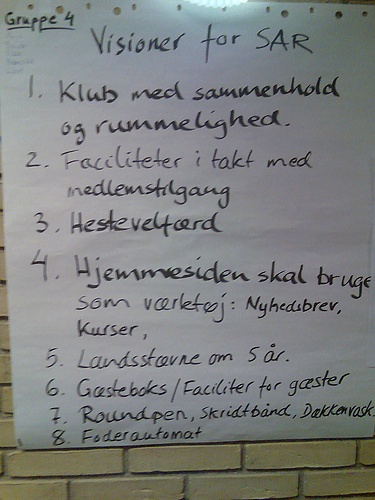 Gruppe 4
Visioner for SAR
1. Klub med sammenhold
og rummelighed.
2. Faciliteter i takt med
medlemstilgang
3. Hestevelfærd
4. Hjemmesiden skal bruge
som værktøj: Nyhedsbrev,
Kurser,
5. Landsstævne om 5 år.
6. Gæsteboks/Faciliter for gæster
7. Roundpen, Skridtbånd, Dækkenvask
8. Foderautomat